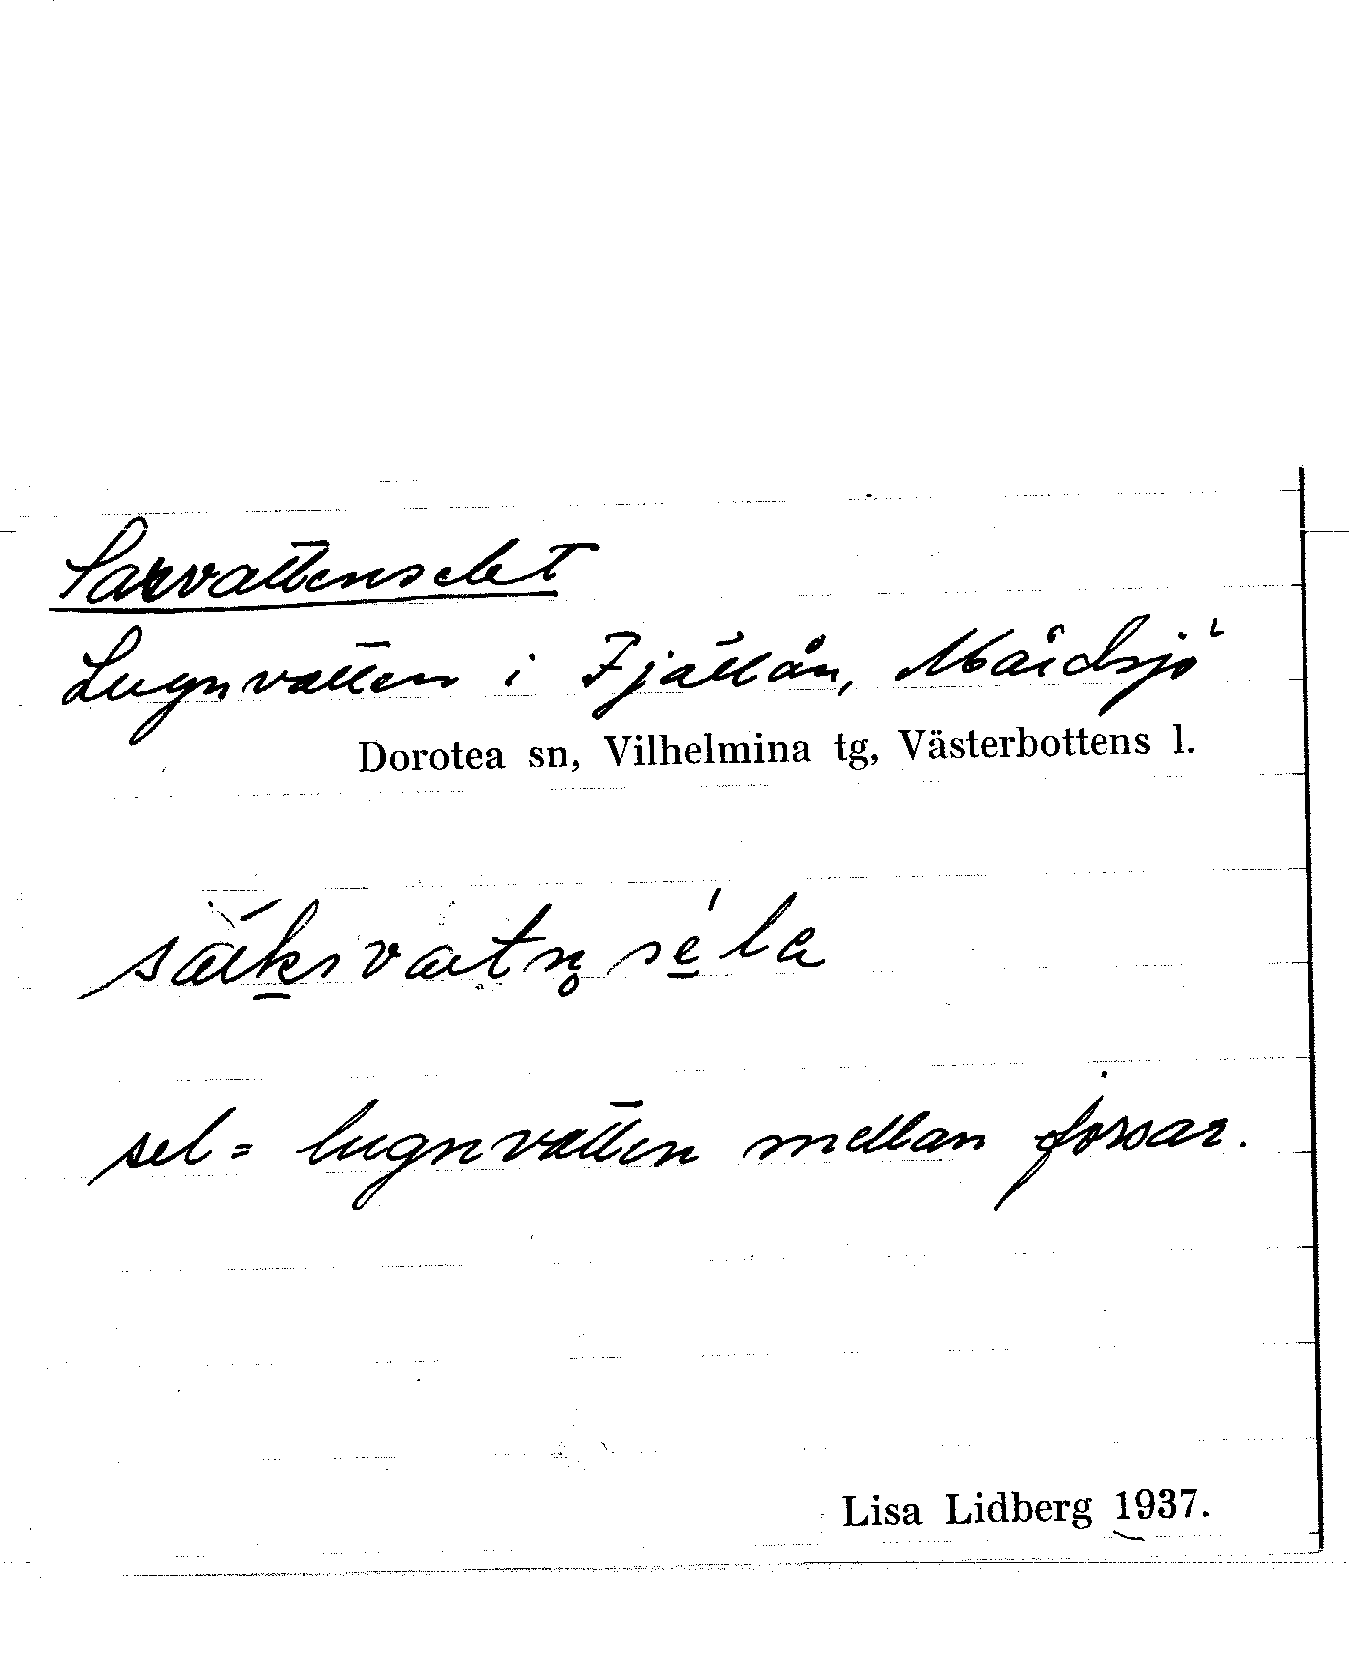 Sarvattenselet
Lugnvatten i Fjällån, Mårdsjö
Dorotea sn, Vilhelmina tg, Västerbottens l.
sel = lugnvatten mellan forsar.
Lisa Lidberg 1937.